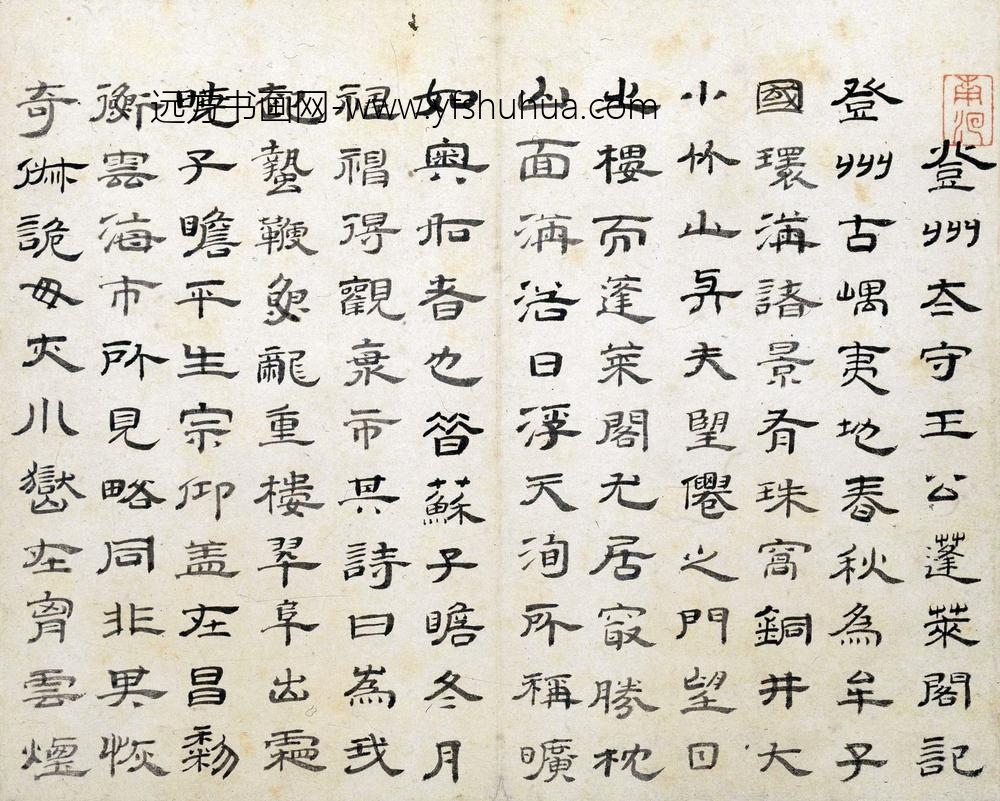 远方书画网-www.yfshuhua.com
登州太守王公蓬萊閣記
登州古嵎夷地春秋為牟子
國環海諸景有珠窩銅井大
小竹山与夫望僊之門望日
出樓而蓬萊閣尤居㝡勝枕
山面海浴日浮天洵所稱曠
如奧如者也昔蘇子瞻冬月
祠得觀海市其詩曰為我
起蟄鞭魚龍重樓翠阜出霜
曉子瞻平生宗仰盖在昌黎
衡雲海市所見略同非其恢
奇俶詭毋夫川嶽在胷雲煙